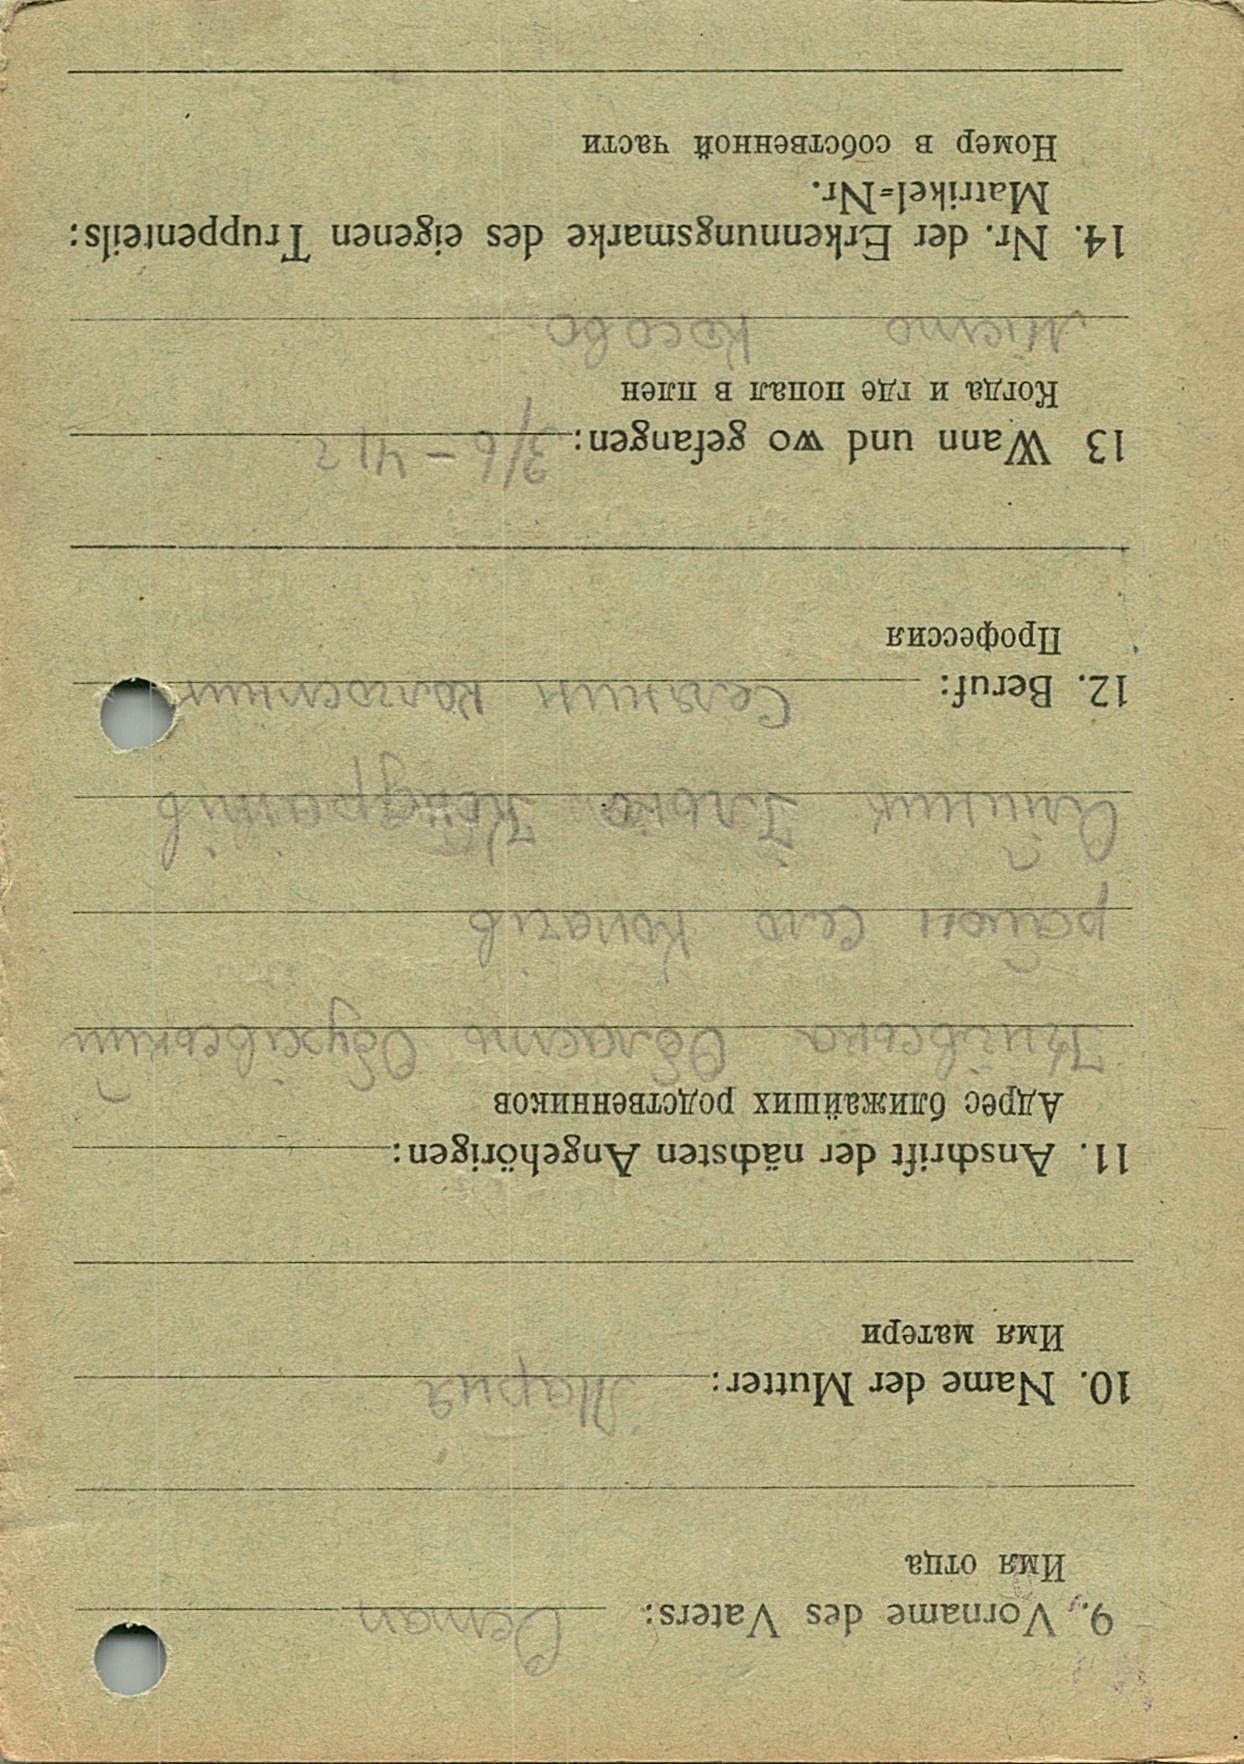 9. Vorname des Vaters: Остап
Имя отца
10. Name der Mutter: Мария
Имя матери
11. Anschrift der nächsten Angehörigen:
Адрес ближайших родственников
Київська Область Обухівський
район село Копачів
Олійник Ілько
12. Beruf: Селянин колгоспник
Профессия
13 Wann und wo gefangen: 3/6 - 41 г
Когда и где попал в плен
Місто Косово
14. Nr. der Erkennungsmarke des eigenen Truppenteils:
Matrikel=Nr.
Номер в собственной части